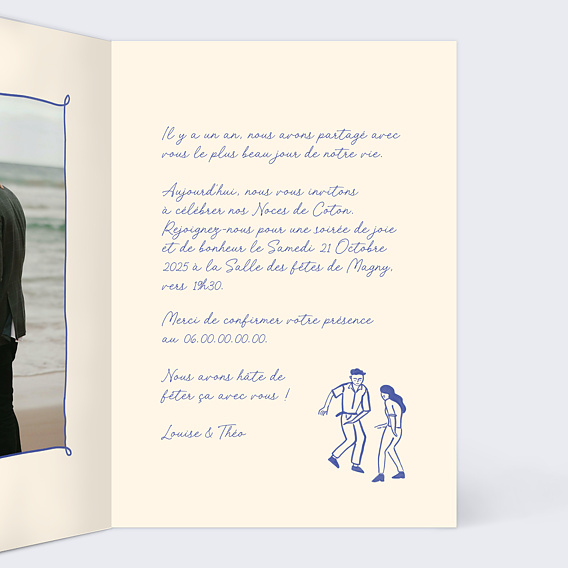 Il y a un an, nous avons partagé avec
vous le plus beau jour de notre vie.
Aujourd'hui, nous vous invitons
à célébrer nos Noces de Coton.
Rejoignez-nous pour une soirée de joie
et de bonheur le Samedi 21 Octobre
2025 à la Salle des fêtes de Magny,
vers 19h30.
Merci de confirmer votre présence
au 06.00.00.00.00.
Nous avons hâte de
fêter ça avec vous !
Louise & Théo